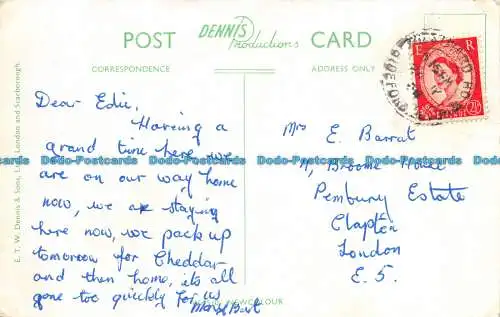 POST DENNIS Productions CARD
CORRESPONDENCE ADDRESS ONLY
Dear Edie,
Having a
grand time here, we
are on our way home
now, we are staying
here now, we pack up
tomorrow for Cheddar
and then home, its all
gone too quickly for us
Mrs E. Barrat
Broome House
Pembury Estate
Clapton
London
E. 5.
E R
2½
E. T. W. Dennis & Sons, Ltd., London and Scarborough
Dodo-Postcards Dodo-Postcards Dodo-Postcards Dodo-Postcards
Dodo-Postcards Dodo-Postcards Dodo-Postcards Dodo-Postcards